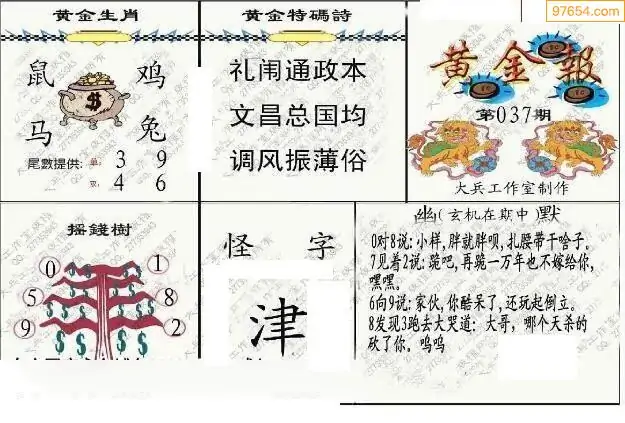 97654.com
黄金生肖
鼠 鸡
$
马 兔
尾數提供: 单: 3 9
双: 4 6
黄金特碼詩
礼闹通政本
文昌总国均
调风振薄俗
黄金報
第037期
大兵工作室制作
摇錢樹
0 1
5 8
9 2
怪 字
津
幽(玄机在期中)默
0对8说:小样,胖就胖呗,扎腰带干啥子。
7见着2说:跪吧,再跪一万年也不嫁给你,
嘿嘿。
6向9说:家伙,你酷呆了,还玩起倒立。
8发现3跑去大哭道: 大哥, 哪个天杀的
砍了你。呜呜